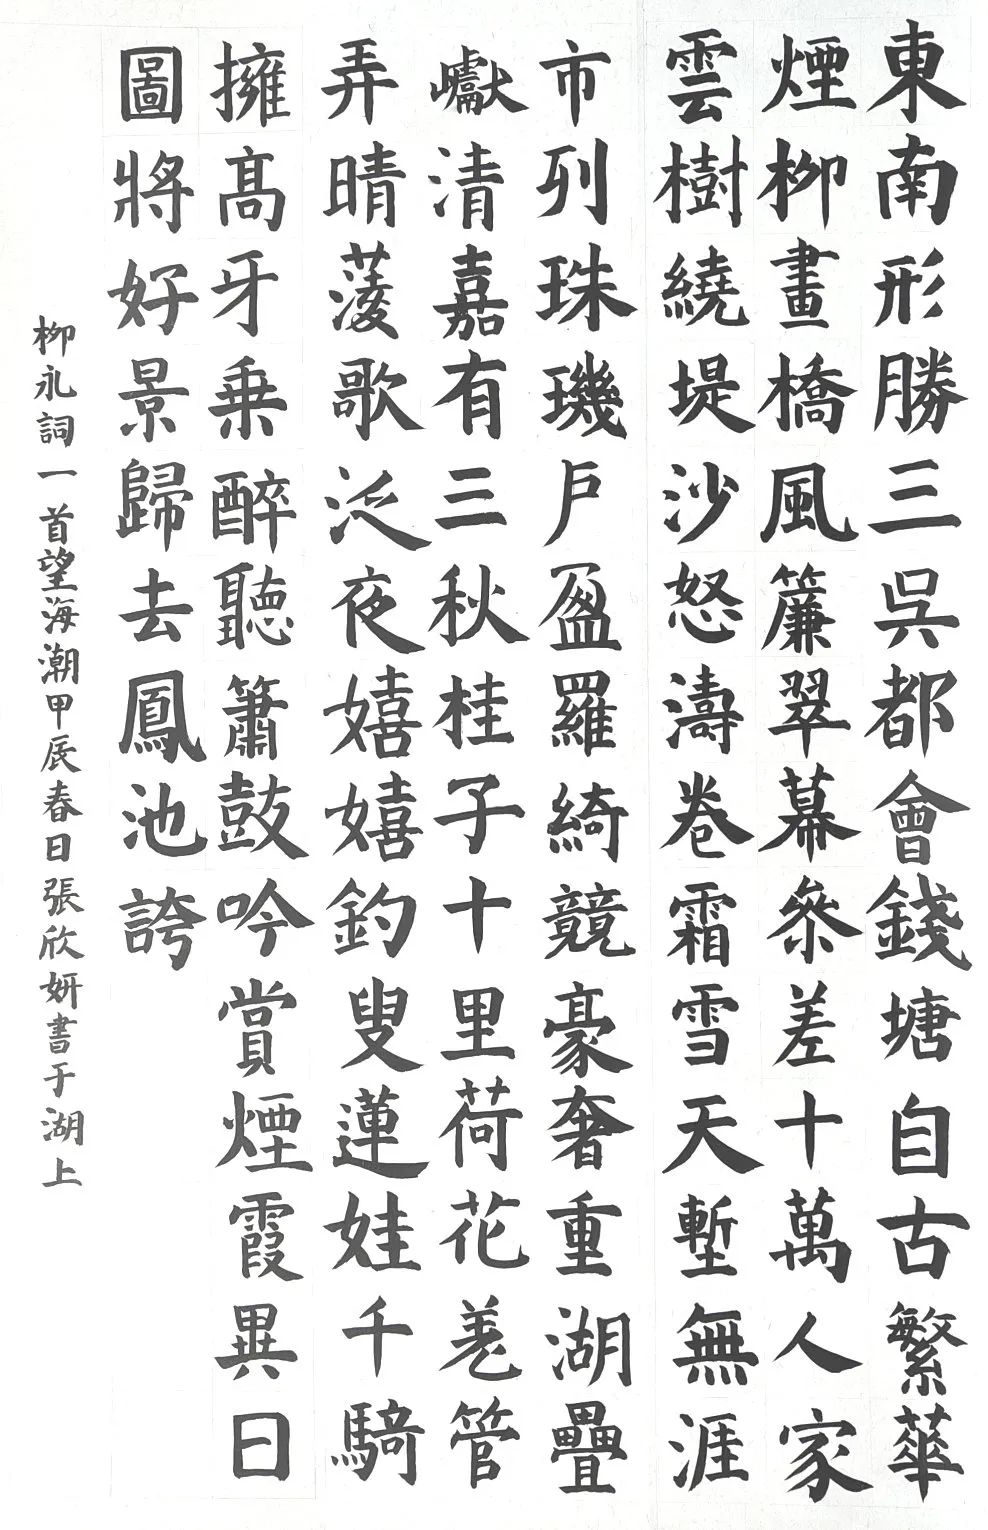 東南形勝三吳都會錢塘自古繁華
煙柳畫橋風簾翠幕叅差十萬人家
雲樹繞堤沙怒濤卷霜雪天塹無涯
市列珠璣戶盈羅綺競豪奢重湖疊
巘清嘉有三秋桂子十里荷花羌管
弄晴菱歌泛夜嬉嬉釣叟蓮娃千騎
擁高牙乗醉聽簫鼓吟賞煙霞異日
圖將好景歸去鳳池誇
柳永詞一首望海潮甲辰春日張欣妍書于湖上